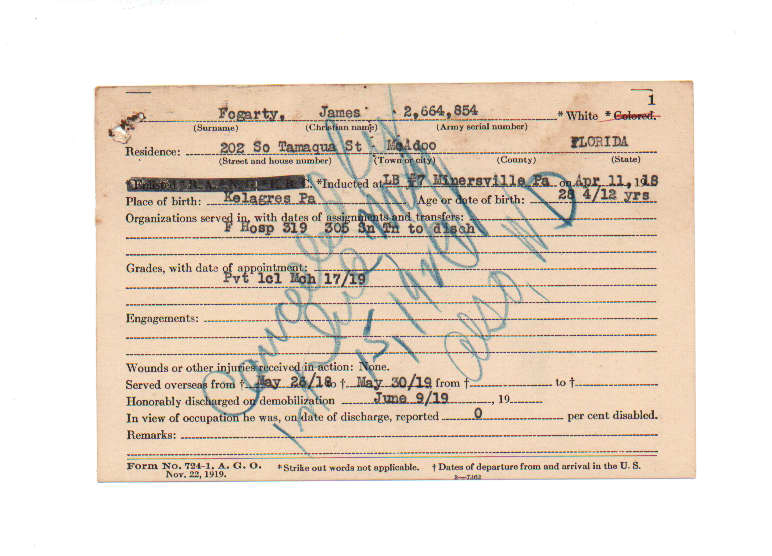 1
Fogarty, James 2,664,854 * White * Colored.
(Surname) (Christian name) (Army serial number)
Residence: 202 So Tamaqua St - McAdoo FLORIDA
(Street and house number) (Town or city) (County) (State)
*Inducted at LB #7 Minersville Pa on Apr 11, 1918
Place of birth: Kelagres Pa Age or date of birth: 28 4/12 yrs
Organizations served in, with dates of assignments and transfers:
F Hosp 319 305 Sn Tn to disch
Grades, with date of appointment:
Pvt 1cl Mch 17/19
Engagements:
Wounds or other injuries received in action: None.
Served overseas from † May 28/18 to † May 30/19 from † to †
Honorably discharged on demobilization June 9/19 , 19
In view of occupation he was, on date of discharge, reported 0 per cent disabled.
Remarks:
Form No. 724-1, A. G. O. *Strike out words not applicable. † Dates of departure from and arrival in the U. S.
Nov. 22, 1919.
3—7363
Cancelled
also WD